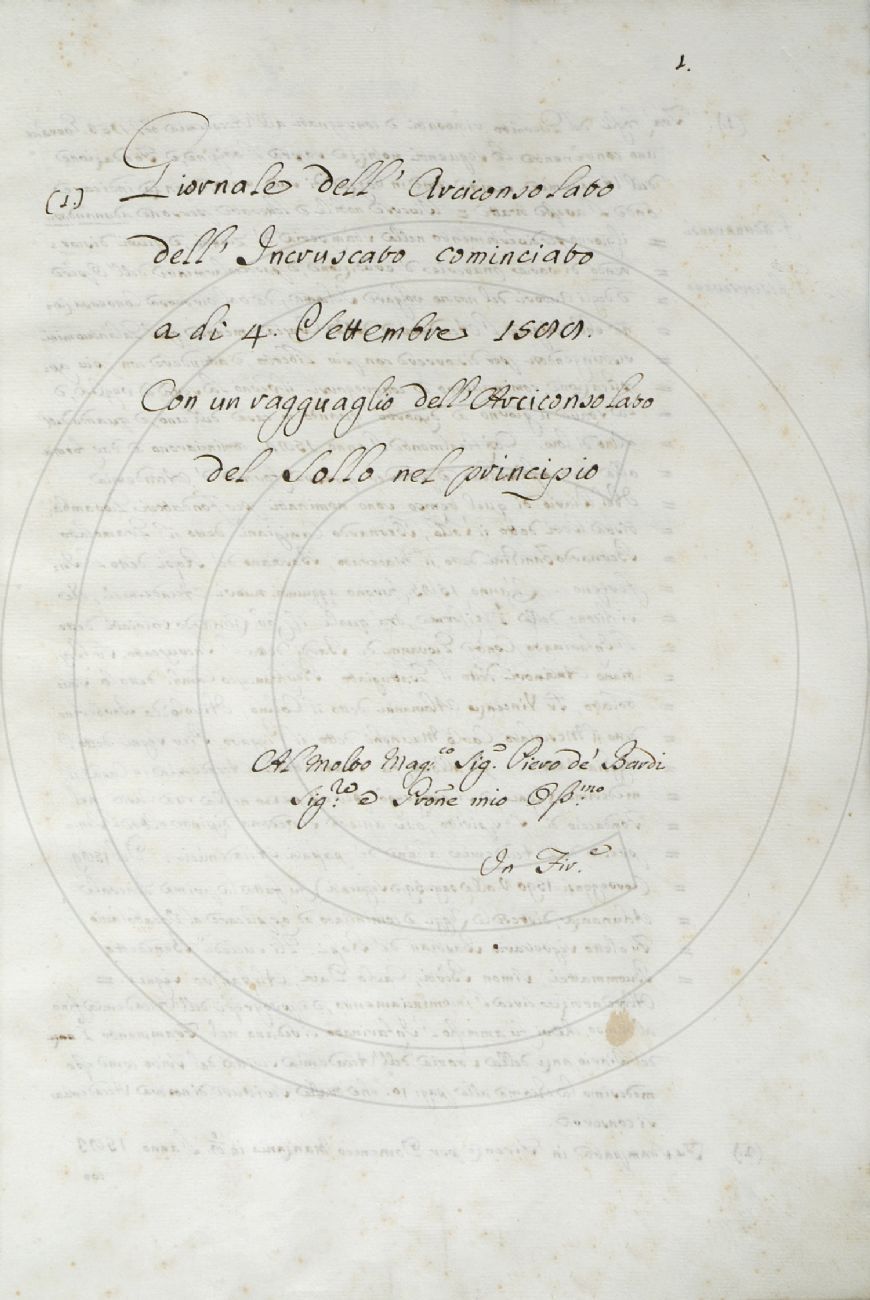 1.
(1.) Giornale dell' Arciconsolato
dell' Incruscato cominciato
a di 4. Settembre
Con un ragguaglio dell' Arciconsolato
del Sollo nel principio
Al Molto Mag.co Sig.o Piero de' Bardi
Sig.re e Prone mio Oss.mo
In Fir.e